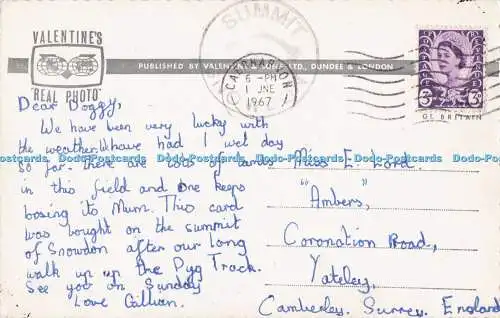 VALENTINE'S
"REAL PHOTO"
PUBLISHED BY VALENTINE & SONS, LTD., DUNDEE & LONDON
SUMMIT
CAERNARVON
6 - PM
1 JNE
1967
3D 3D
GT. BRITAIN
Dear Doggy,
We have been very lucky with
the weather. Whave had 1 wet day
so far. there are lots of lambs
in this field and one keeps
bosing its Mum. This card
was bought on the summit
of Snowdon after our long
walk up up the Pyg Track.
See you on Sunday
Love Gillian.
Miss E. Lord.
"Ambers",
Coronation Road,
Yateley,
Camberley. Surrey. England
Postcards www.dodo-postcards.com Dodo-Postcards